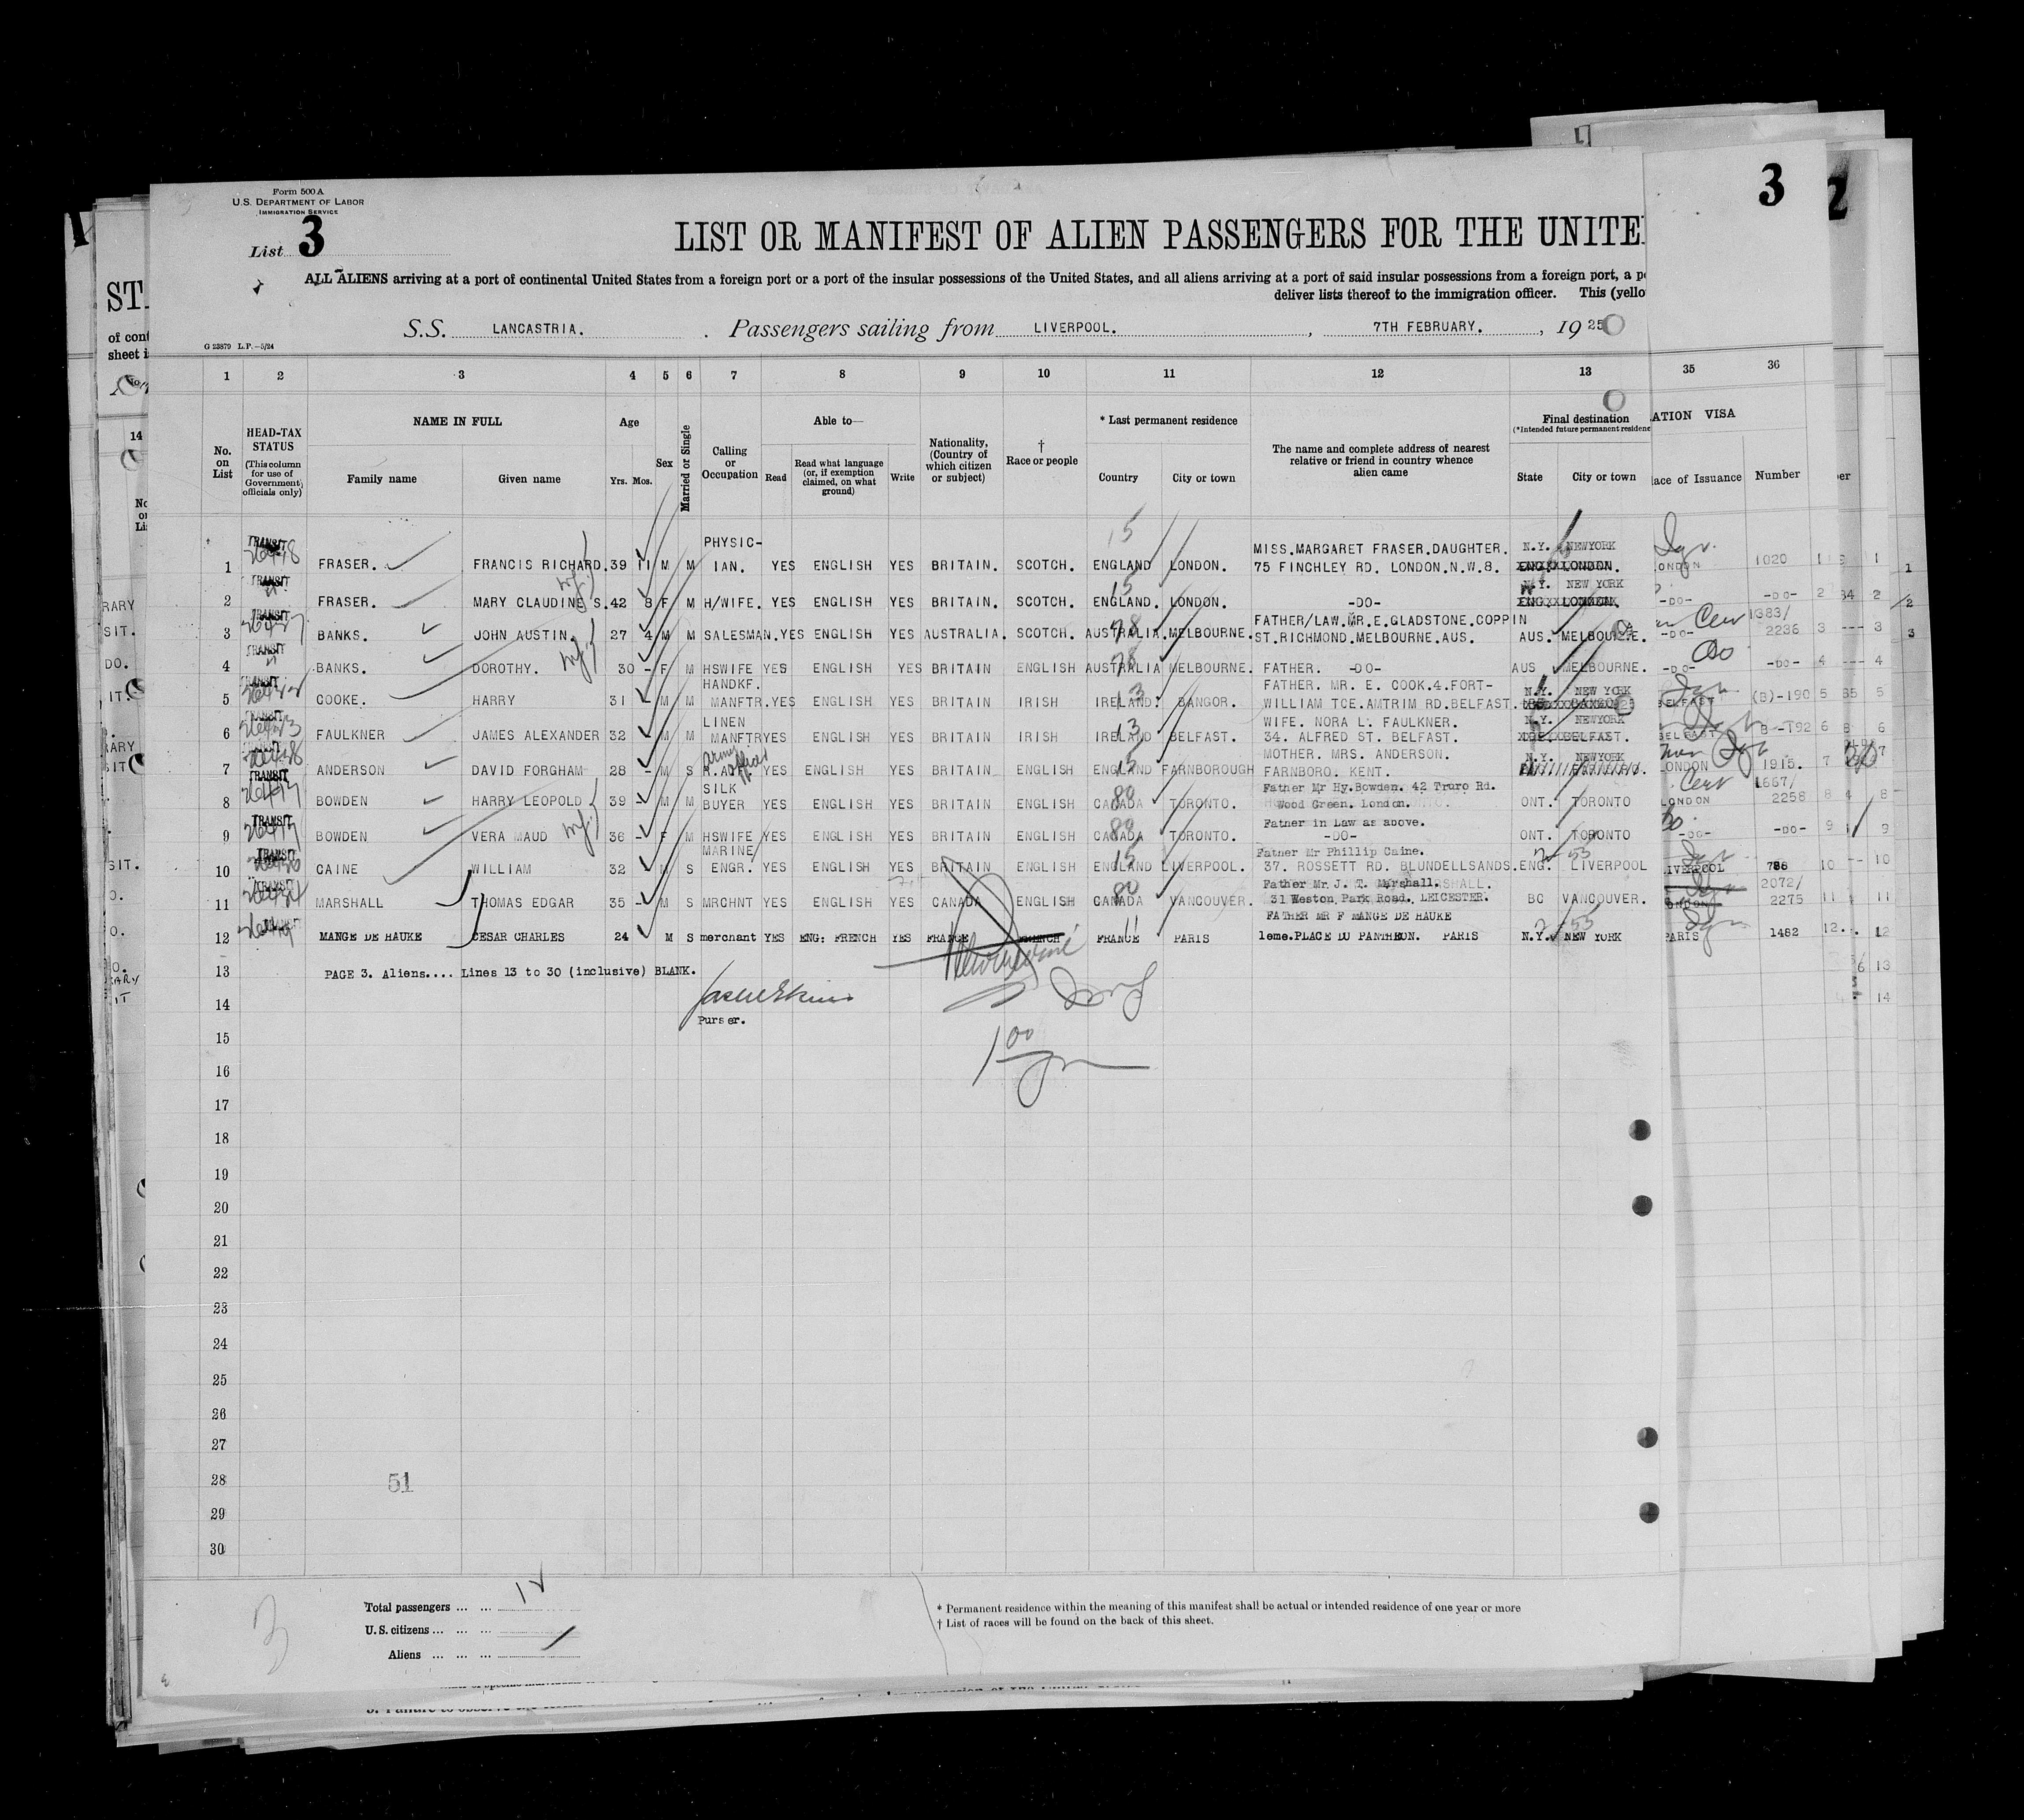 Form 500 A
U.S. DEPARTMENT OF LABOR
IMMIGRATION SERVICE
3
List 3
LIST OR MANIFEST OF ALIEN PASSENGERS FOR THE UNITE
ALL ALIENS arriving at a port of continental United States from a foreign port or a port of the insular possessions of the United States, and all aliens arriving at a port of said insular possessions from a foreign port, a p
deliver lists thereof to the immigration officer. This (yello
S.S. LANCASTRIA. Passengers sailing from LIVERPOOL. , 7TH FEBRUARY. , 1925
G 23879 L.P.—5/24
1 2 3 4 5 6 7 8 9 10 11 12 13 35 36
No. on List
HEAD-TAX STATUS
(This column for use of Government officials only)
NAME IN FULL
Family name Given name
Age
Yrs. Mos.
Sex
Married or Single
Calling or Occupation
Able to—
Read
Read what language (or, if exemption claimed, on what ground)
Write
Nationality, (Country of which citizen or subject)
† Race or people
* Last permanent residence
Country City or town
The name and complete address of nearest relative or friend in country whence alien came
Final destination
(*Intended future permanent residence
State City or town
ATION VISA
ace of Issuance Number
TRANSIT PHYSIC- MISS.MARGARET FRASER.DAUGHTER. N.Y. NEWYORK
1 FRASER. FRANCIS RICHARD. 39 11 M M IAN. YES ENGLISH YES BRITAIN. SCOTCH. ENGLAND LONDON. 75 FINCHLEY RD. LONDON.N.W.8. ENG. LONDON. ONDON 1020
TRANSIT N.Y. NEW YORK
2 FRASER. MARY CLAUDINE S. 42 8 F M H/WIFE. YES ENGLISH YES BRITAIN. SCOTCH. ENGLAND. LONDON. -DO- ENG LONDON. -DO- -DO-
TRANSIT FATHER/LAW.MR.E.GLADSTONE.COPPIN 1383/
3 BANKS. JOHN AUSTIN. 27 4 M M SALESMAN. YES ENGLISH YES AUSTRALIA. SCOTCH. AUSTRALIA. MELBOURNE. ST.RICHMOND.MELBOURNE.AUS. AUS. MELBOURNE. -DO- 2236
TRANSIT
4 BANKS. DOROTHY. 30 - F M HSWIFE YES ENGLISH YES BRITAIN ENGLISH AUSTRALIA MELBOURNE. FATHER. -DO- AUS MELBOURNE. -DO- -DO-
TRANSIT HANDKF. FATHER. MR. E. COOK.4.FORT- N.Y. NEW YORK
5 COOKE. HARRY 31 M M MANFTR. YES ENGLISH YES BRITAIN IRISH IRELAND. BANGOR. WILLIAM TCE.AMTRIM RD.BELFAST. BELFAST (B)-190
TRANSIT LINEN WIFE. NORA L. FAULKNER. N.Y. NEWYORK
6 FAULKNER JAMES ALEXANDER 32 M M MANFTR YES ENGLISH YES BRITAIN IRISH IRELAND BELFAST. 34. ALFRED ST. BELFAST. BELFAST. BELFAST B -192
army officer MOTHER. MRS. ANDERSON. N.Y. NEWYORK
7 ANDERSON DAVID FORGHAM 28 - M S YES ENGLISH YES BRITAIN ENGLISH ENGLAND FARNBOROUGH FARNBORO. KENT. LONDON 1915.
TRANSIT SILK Father Mr Hy.Bowden. 42 Truro Rd. 1667/
8 BOWDEN HARRY LEOPOLD 39 - M M BUYER YES ENGLISH YES BRITAIN ENGLISH CANADA TORONTO. Wood Green. London. ONT. TORONTO LONDON 2258
TRANSIT Father in Law as above.
9 BOWDEN VERA MAUD 36 - F M HSWIFE YES ENGLISH YES BRITAIN ENGLISH CANADA TORONTO. -DO- ONT. TORONTO -DO- -DO-
TRANSIT MARINE Father Mr Phillip Caine.
10 CAINE WILLIAM 32 M S ENGR. YES ENGLISH YES BRITAIN ENGLISH ENGLAND LIVERPOOL. 37. ROSSETT RD. BLUNDELLSANDS. ENG. LIVERPOOL LIVERPOOL 786
TRANSIT Father Mr. J. T. Marshall. 2072/
11 MARSHALL THOMAS EDGAR 35 - M S MRCHNT YES ENGLISH YES CANADA ENGLISH CANADA VANCOUVER. 31 Weston Park Road. LEICESTER. BC VANCOUVER. 2275
FATHER MR F MANGE DE HAUKE
12 MANGE DE HAUKE CESAR CHARLES 24 M S merchant YES ENG: FRENCH YES FRANCE FRENCH FRANCE PARIS 1eme.PLACE DU PANTHEON. PARIS N.Y. NEW YORK PARIS 1482
13 PAGE 3. Aliens.... Lines 13 to 30 (inclusive) BLANK.
14
Purser.
15
1 00
16
17
18
19
20
21
22
23
24
25
26
27
28 51
29
30
Total passengers 12
U.S. citizens
Aliens
* Permanent residence within the meaning of this manifest shall be actual or intended residence of one year or more
† List of races will be found on the back of this sheet.
3